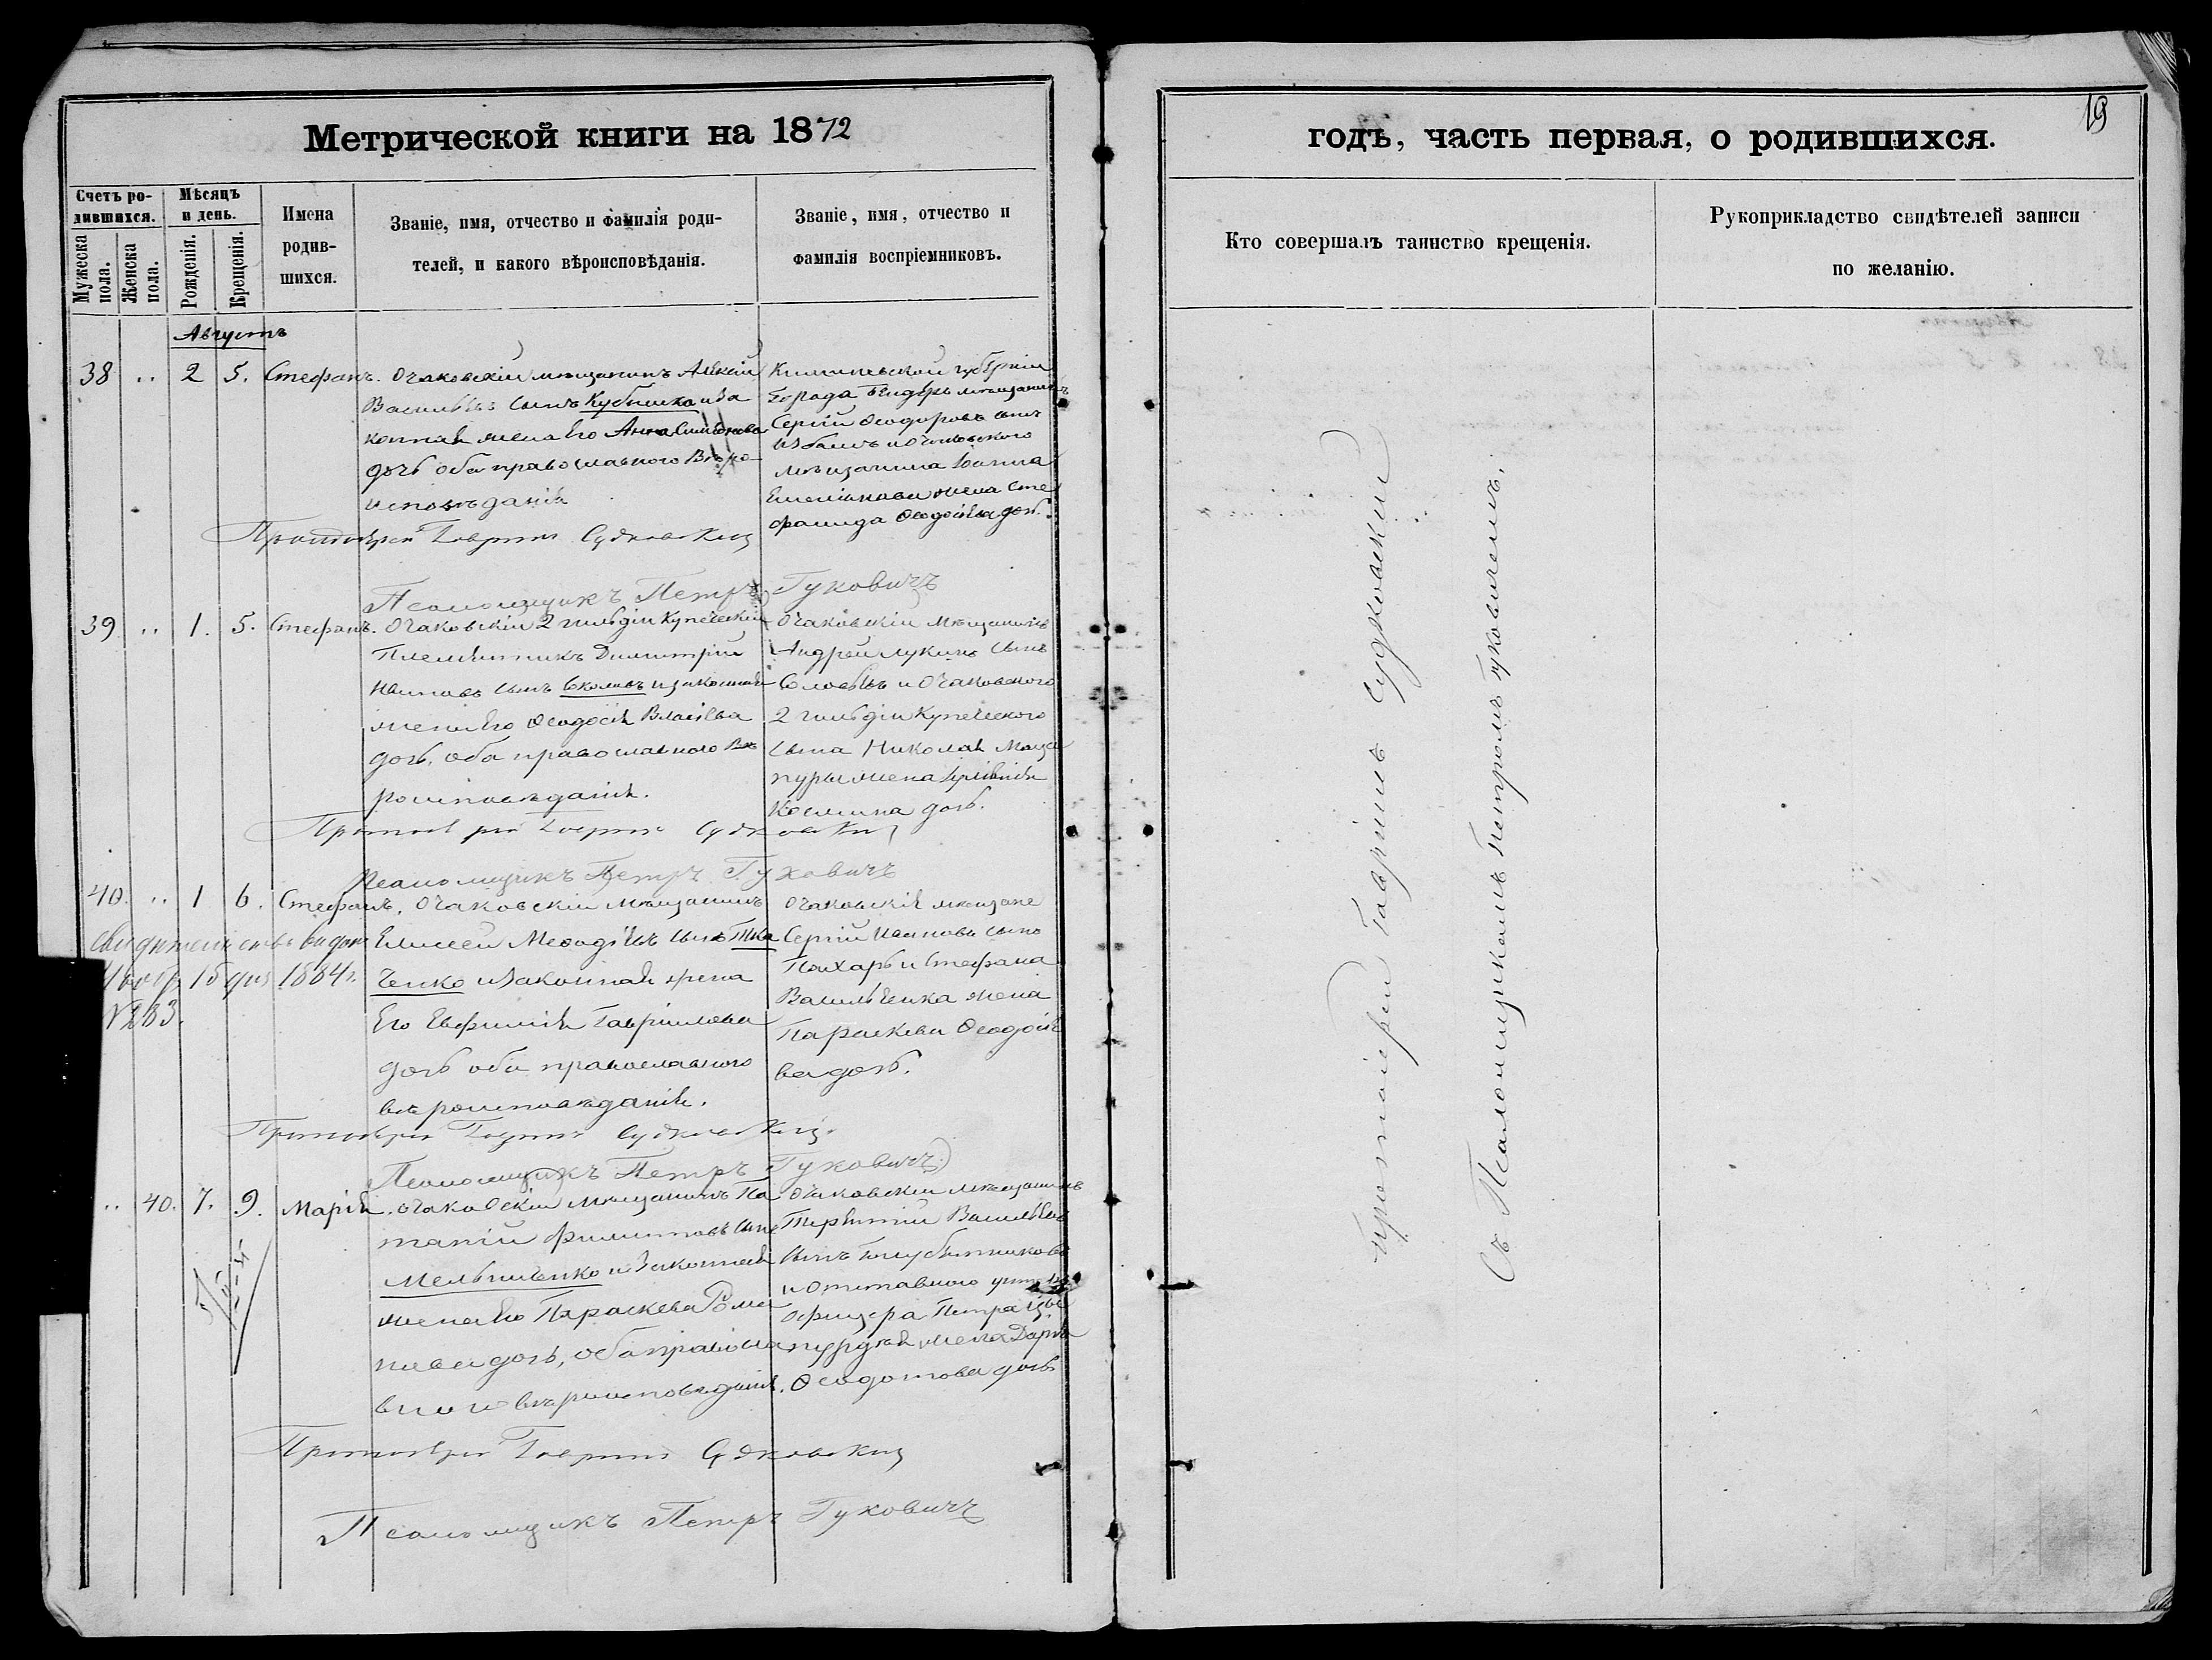 Метрической книги на 1872
Счетъ ро-
дившихся.
Мужеска
пола.
Женска
пола.
Мѣсяцъ
и день.
Рожденія.
Крещенія.
Имена
родив-
шихся.
Званіе, имя, отчество и фамилія роди-
телей, и какого вѣроисповѣданія.
Званіе, имя, отчество и
фамилія воспріемниковъ.
Августъ
38 .. 2 5. Стефанъ.
Очаковскій мѣщанинъ
Васильевъ сынъ Кубышка и за
конная жена его Анна
дочь оба православнаго Вѣро-
исповѣданія
Кишиневской губерніи
города Бендеръ мѣщанинъ
Сергій Феодоровъ сынъ
и Очаковского
мѣщанина Іоанна
жена Сте
фанида дочь.
Протоіерей Гавріилъ Судковскій
Псаломщикъ Петръ Гуковичъ
39 .. 1. 5. Стефанъ.
Очаковскій 2 гильдіи Купеческій
Племянникъ Димитрій
Ивановъ сынъ и законная
жена его Феодосія Власіева
дочь, оба православнаго Вѣ
роисповѣданія.
Очаковскій мѣщанинъ
Андрей Лукинъ сынъ
Соловьевъ и Очаковского
2 гильдіи Купеческого
сына Николая
жена
Космина дочь.
Протоіерей Гавріилъ Судковскій
Псаломщикъ Петръ Гуковичъ
40. .. 1 6. Стефанъ.
свидѣтельство выдано
15 дня 1884 г.
Очаковскій мѣщанинъ
Елисей Меѳодіевъ сынъ Тка
ченко и законная жена
Его Евфимія Гавріилова
дочь оба православнаго
вѣроисповѣданія.
Очаковскіе мѣщане
Сергій Ивановъ сынъ
и Стефана
Васильченка жена
Параскева Феодосіе
ва дочь.
Протоіерей Гавріилъ Судковскій
Псаломщикъ Петръ Гуковичъ
.. 40. 7. 9. Марія.
Очаковскій мѣщанинъ По
тапій Филиповъ сынъ
Мельниченко и Законная
жена его Параскева Рома
нова дочь, оба правосла
внаго вѣроисповѣданія.
Очаковскій мѣщанинъ
Терентій Васильевъ
сынъ Голубятниковъ
и Отставного унтеръ
офицера Петра
жена Дарія
Феодотова дочь
Протоіерей Гавріилъ Судковскій
Псаломщикъ Петръ Гуковичъ
19
годъ, часть первая, о родившихся.
Кто совершалъ таинство крещенія.
Рукоприкладство свидѣтелей записи
по желанію.
Протоіерей Гавріилъ Судковскій
Съ Псаломщикомъ Петромъ Гуковичемъ.